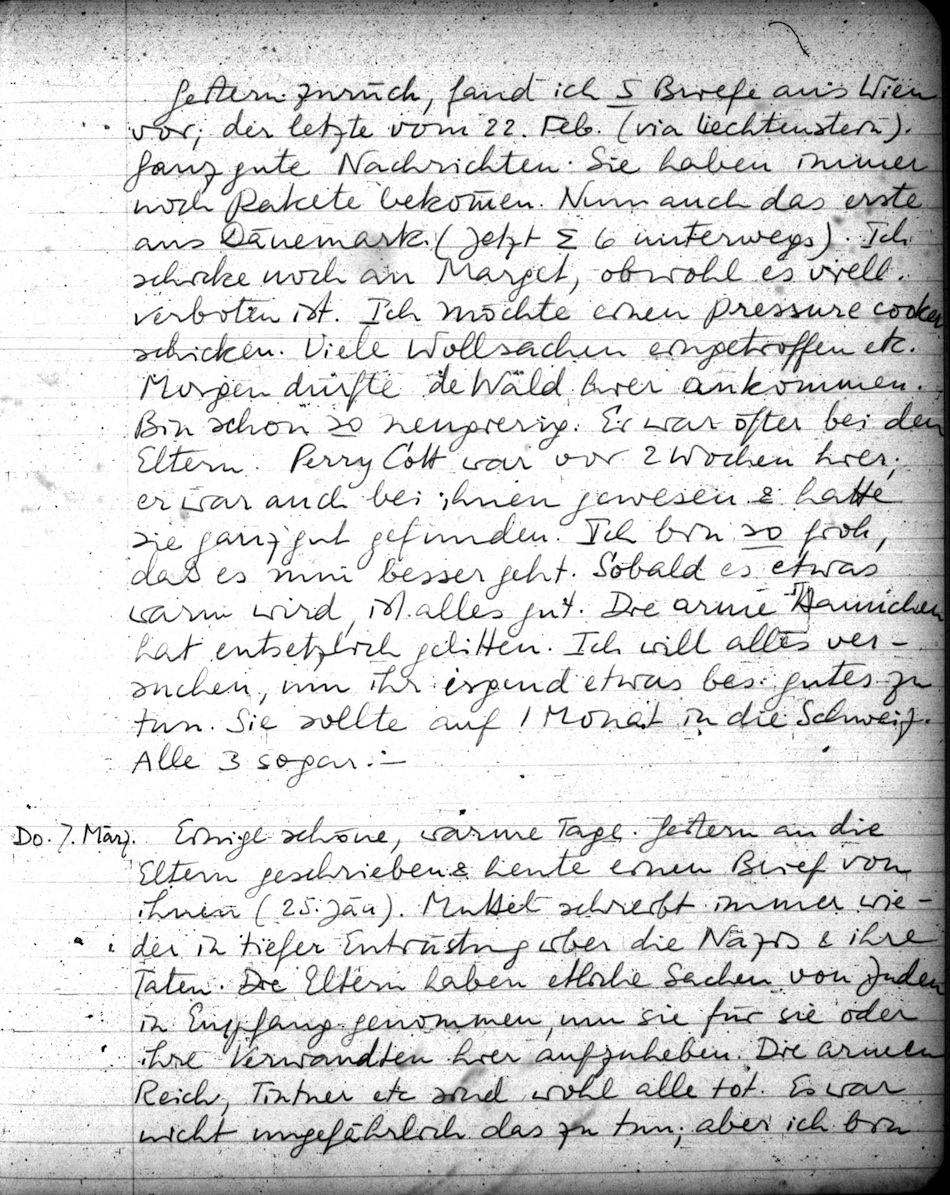 Gestern zurück, fand ich 5 Briefe aus Wien
vor; der letzte vom 22. Feb. (via Liechtenstein).
Ganz gute Nachrichten. Sie haben immer
noch Pakete bekom̄en. Nun auch das erste
aus Dänemark. (Jetzt Σ 6 unterwegs). Ich
schicke noch an Marget, obwohl es viell.
verboten ist. Ich möchte einen pressure cooker
schicken. Viele Wollsachen eingetroffen etc.
Morgen dürfte de Wald hier ankommen.
Bin schon so neugierig. Er war öfter bei den
Eltern. Perry Cott war vor 2 Wochen hier;
er war auch bei ihnen gewesen & hatte
sie ganz gut gefunden. Ich bin so froh,
daß es nun besser geht. Sobald es etwas
warm wird, ist alles gut. Die arme Hannichen
hat entsetzlich gelitten. Ich will alles ver-
suchen, um ihr irgend etwas bes. gutes zu
tun. Sie sollte auf 1 Monat in die Schweiz.
Alle 3 sogar.—
Do. 7. März. Einige schöne, warme Tage. Gestern an die
Eltern geschrieben & heute einen Brief von
ihnen (25. Jan). Muttel schreibt immer wie-
der in tiefer Entrüstung über die Nazis & ihre
Taten. Die Eltern haben etliche Sachen von Juden
in Empfang genommen, um sie für sie oder
ihre Verwandten hier aufzuheben. Die armen
Reich, Tintner etc sind wohl alle tot. Es war
nicht ungefährlich das zu tun; aber ich bin